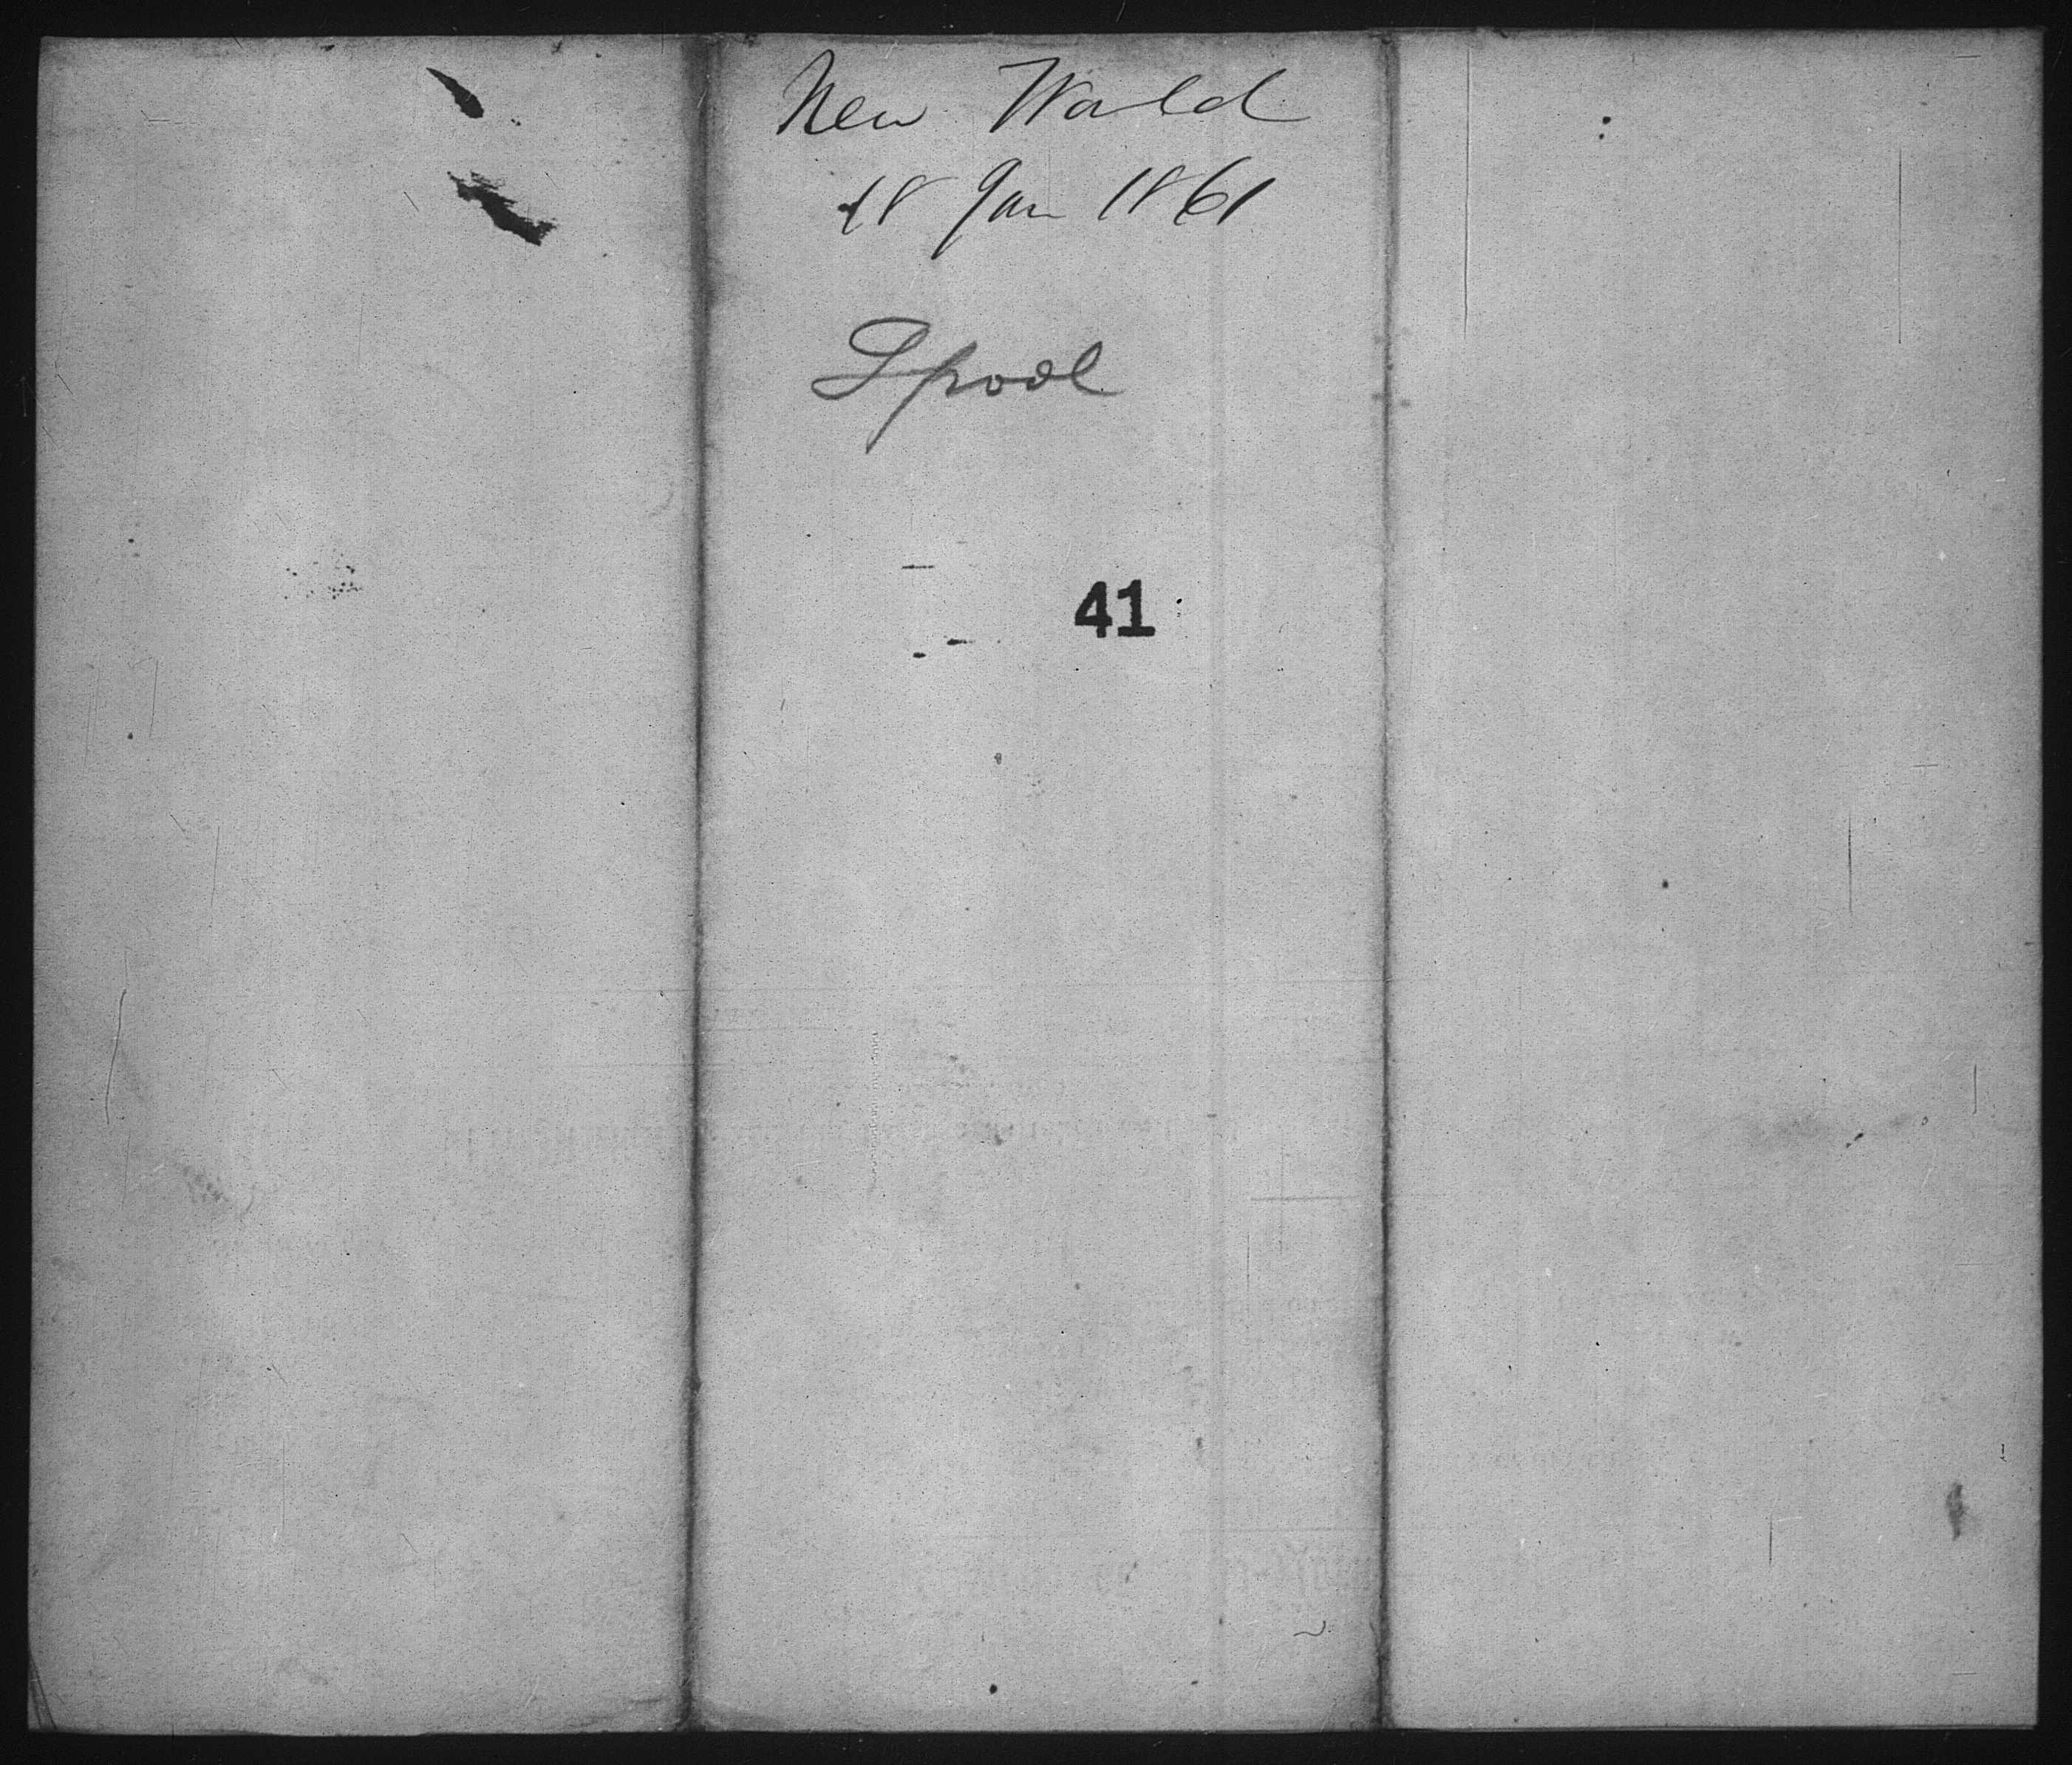 New World
18 Jan 1861
Lpool
41